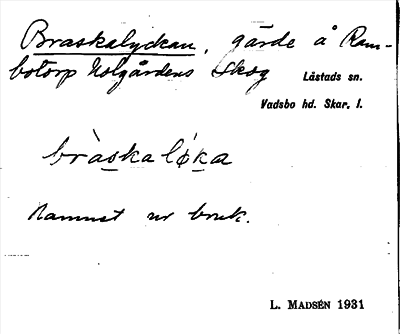 Braskalyckan, gärde å Ram-
botorp Nolgårdens Skog Låstads sn.
Vadsbo hd. Skar. l.
bràskalǿka
Namnet ur bruk.
L. MADSÉN 1931